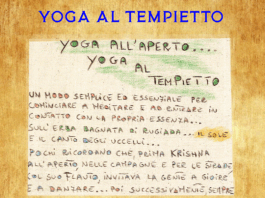 YOGA AL TEMPIETTO
YOGA ALL'APERTO....
YOGA
AL
TEMPIETTO
UN MODO SEMPLICE ED ESSENZIALE PER
COMINCIARE A MEDITARE E AD ENTRARE IN
CONTATTO CON LA PROPRIA ESSENZA...
SULL'ERBA BAGNATA DI RUGIADA... IL SOLE
E IL CANTO DEGLI UCCELLI...
POCHI RICORDANO CHE PRIMA KRISHNA
ALL'APERTO NELLE CAMPAGNE E PER LE STRADE
COL SUO FLAUTO, INVITAVA LA GENTE A GIOIRE
E A DANZARE... POI SUCCESSIVAMENTE, SEMPRE